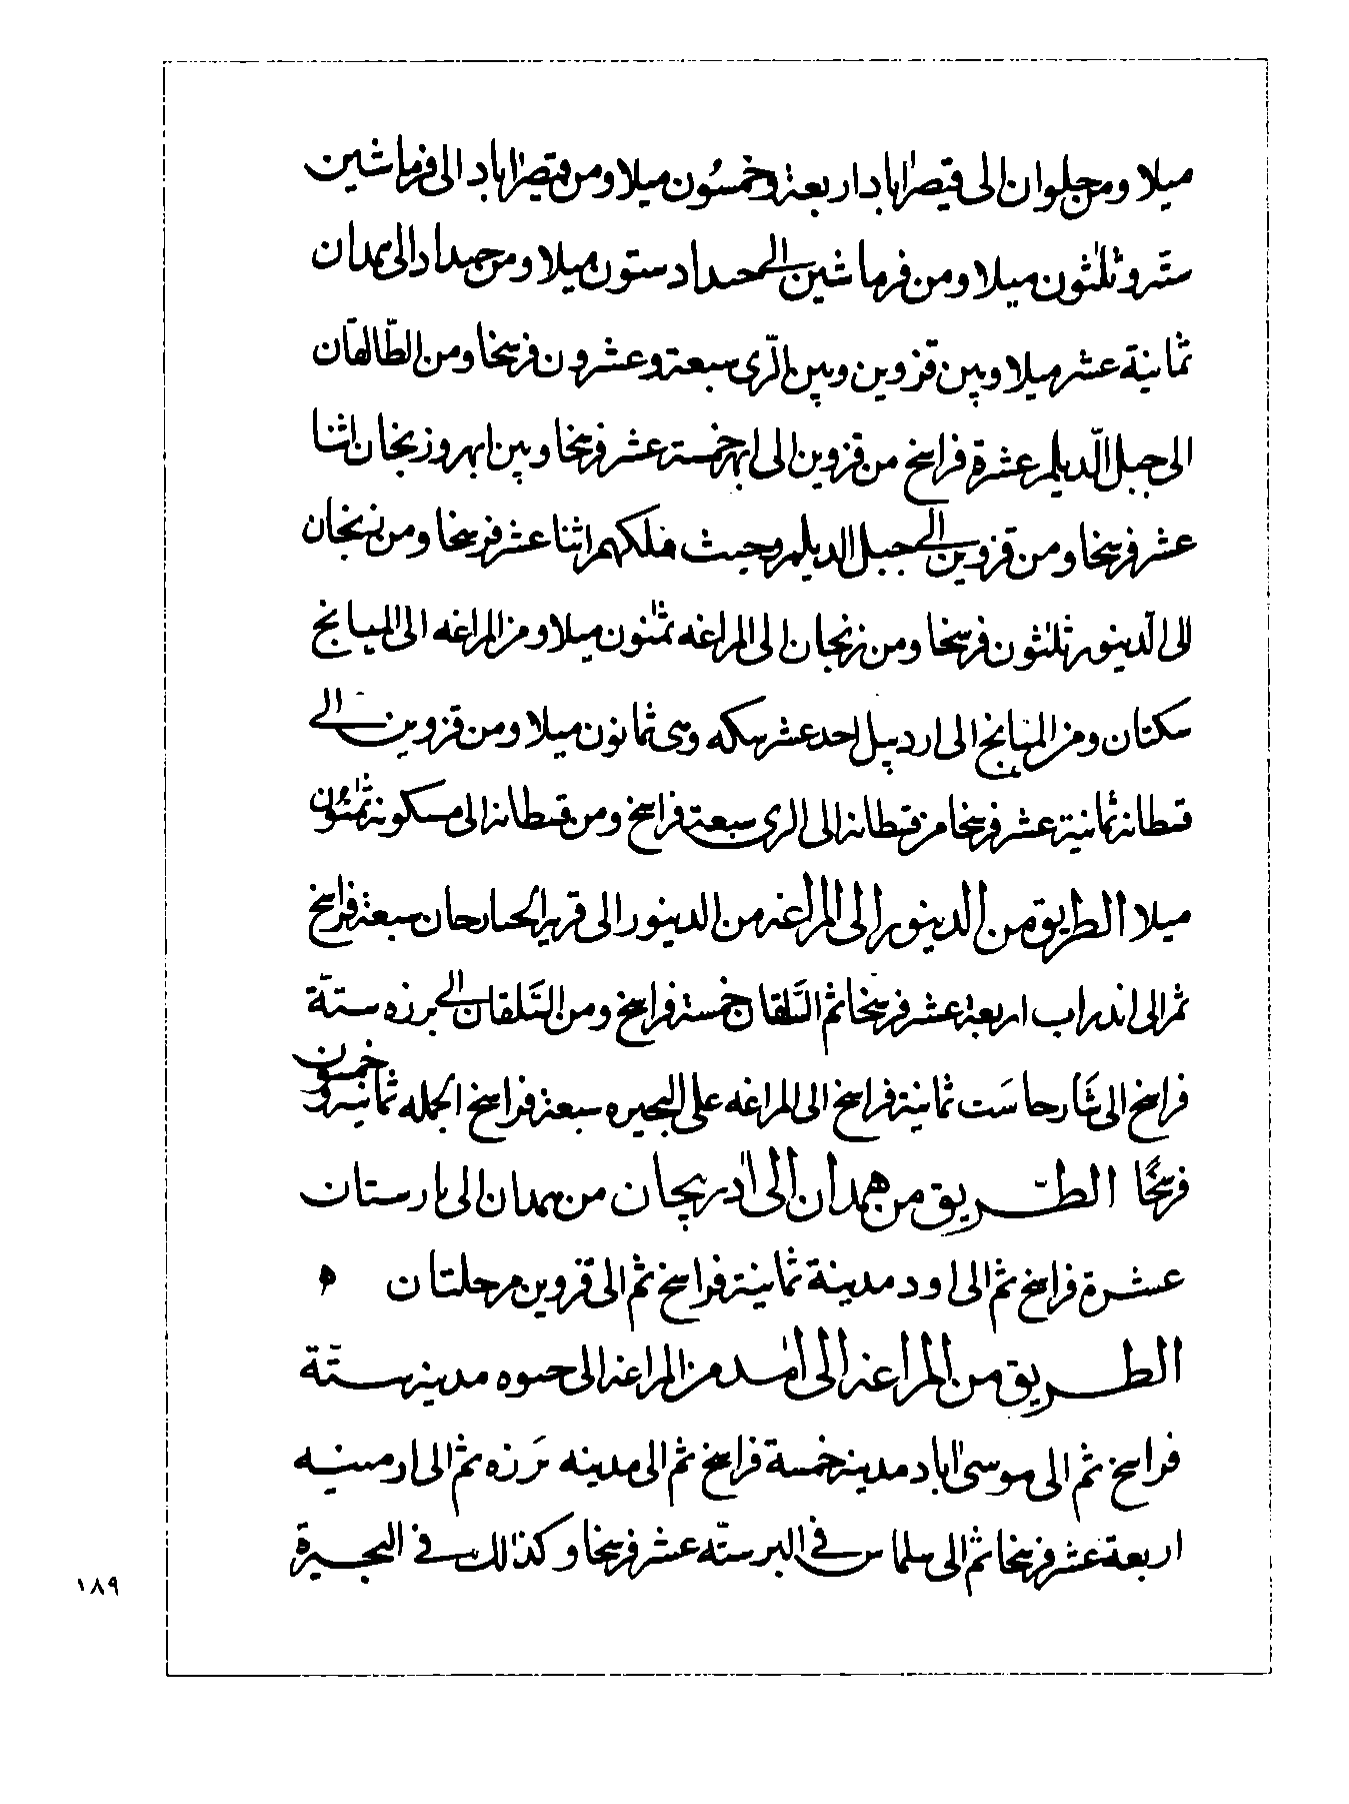 ميلا ومن حلوان الى قيصراباد اربعة وخمسون ميلا ومن قيصراباد الى فرماشين
ستة وثلثون ميلا ومن فرماشين الى حداد ستون ميلا ومن حداد الى همدان
ثمانية عشر ميلا وبين قزوين وبين الرّى سبعة وعشرون فرسخا ومن الطّالقان
الى جبل الدّيلم عشرة فراسخ من قزوين الى ابهر خمسة عشر فرسخا وبين ابهر وزنجان اثنا
عشر فرسخا ومن قزوين الى جبل الديلم وحيث ملكهم اثنا عشر فرسخا ومن زنجان
الى الدّينور ثلثون فرسخا ومن زنجان الى المراغه ثمنون ميلا ومن المراغه الى الميانج
سكتان ومن الميانج الى اردبيل احد عشر سكه وهى ثمانون ميلا ومن قزوين الى
قسطانة ثمانية عشر فرسخا من قسطانة الى الرى سبعة فراسخ ومن قسطانة الى مسكونة ثمنون
ميلا الطريق من الدينور الى المراغة من الدينور الى قرية الحبارحان سبعة فراسخ
ثم الى اندراب اربعة عشر فرسخا ثم السَّلقان خمسة فراسخ ومن السَّلقان الى برزه ستّة
فراسخ الى ثارحاست ثمانية فراسخ الى المراغه على البحيره سبعة فراسخ الجمله ثمانية وخمسون
فرسخًا الطّريق من همدان الى اذربيجان من همدان الى بارستان
عشرة فراسخ ثم الى اود مدينة ثمانية فراسخ ثم الى قزوين مرحلتان ه
الطريق من المراغة الى امد من المراغة الى حىوه مدينة ستّة
فراسخ ثم الى موسى اباد مدينة خمسة فراسخ ثم الى مدينه برزه ثم الى ارمىنيه
اربعة عشر فرسخا ثم الى سلماس فى البر ستّه عشر فرسخا وكذالك فى البحيرة
١٨٩